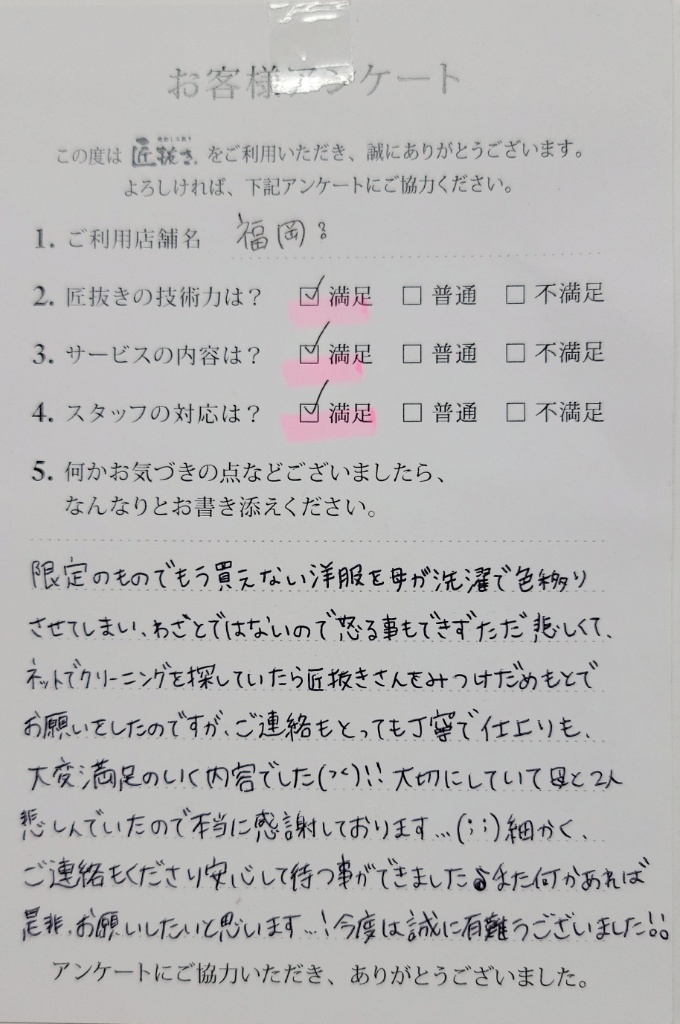 お客様アンケート
この度は 匠抜き をご利用いただき、誠にありがとうございます。
よろしければ、下記アンケートにご協力ください。
1. ご利用店舗名 福岡
2. 匠抜きの技術力は? ☑ 満足 □ 普通 □ 不満足
3. サービスの内容は? ☑ 満足 □ 普通 □ 不満足
4. スタッフの対応は? ☑ 満足 □ 普通 □ 不満足
5. 何かお気づきの点などございましたら、
なんなりとお書き添えください。
限定のものでもう買えない洋服を母が洗濯で色移り
させてしまい、わざとではないので怒る事もできずただ悲しくて、
ネットでクリーニングを探していたら匠抜きさんをみつけだめもとで
お願いをしたのですが、ご連絡もとっても丁寧で仕上りも、
大変満足のいく内容でした(^^)!! 大切にしていて母と2人
悲しんでいたので本当に感謝しております…(;;)細かく、
ご連絡もくださり安心して待つ事ができました♪また何かあれば
是非、お願いしたいと思います…!今度は誠に有難うございました!!
アンケートにご協力いただき、ありがとうございました。